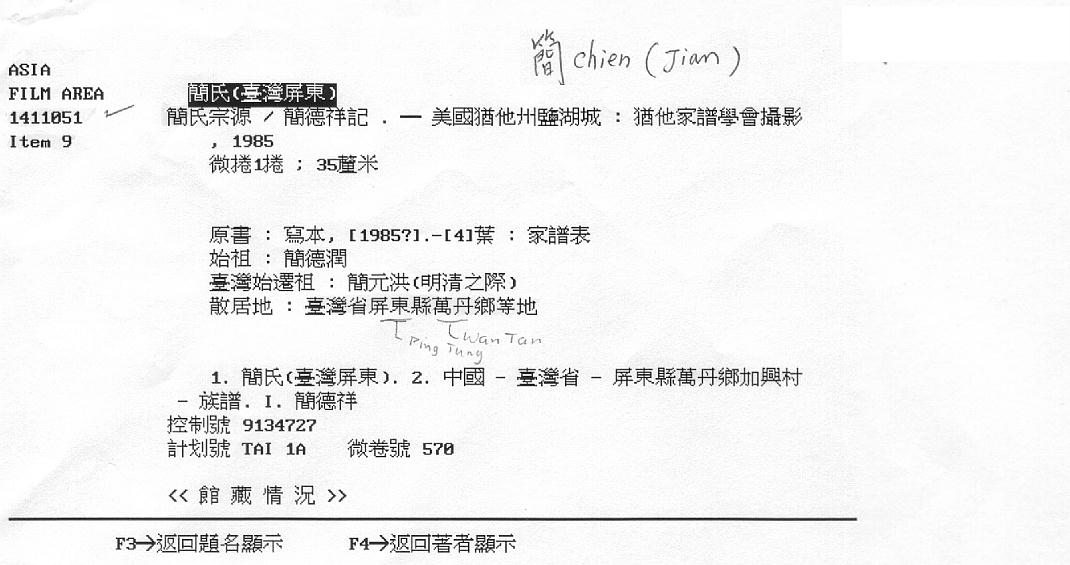 簡 chien (Jian)
ASIA
FILM AREA
1411051
Item 9
簡氏(臺灣屏東)
簡氏宗源 / 簡德祥記 . — 美國猶他州鹽湖城 : 猶他家譜學會攝影
, 1985
微捲1捲 ; 35釐米
原書 : 寫本, [1985?].-[4]葉 : 家譜表
始祖 : 簡德潤
臺灣始遷祖 : 簡元洪(明清之際)
散居地 : 臺灣省屏東縣萬丹鄉等地
Ping Tung
Wan Tan
1. 簡氏(臺灣屏東). 2. 中國 - 臺灣省 - 屏東縣萬丹鄉加興村
- 族譜. I. 簡德祥
控制號 9134727
計划號 TAI 1A 微卷號 570
<< 館 藏 情 況 >>
F3→返回題名顯示 F4→返回著者顯示